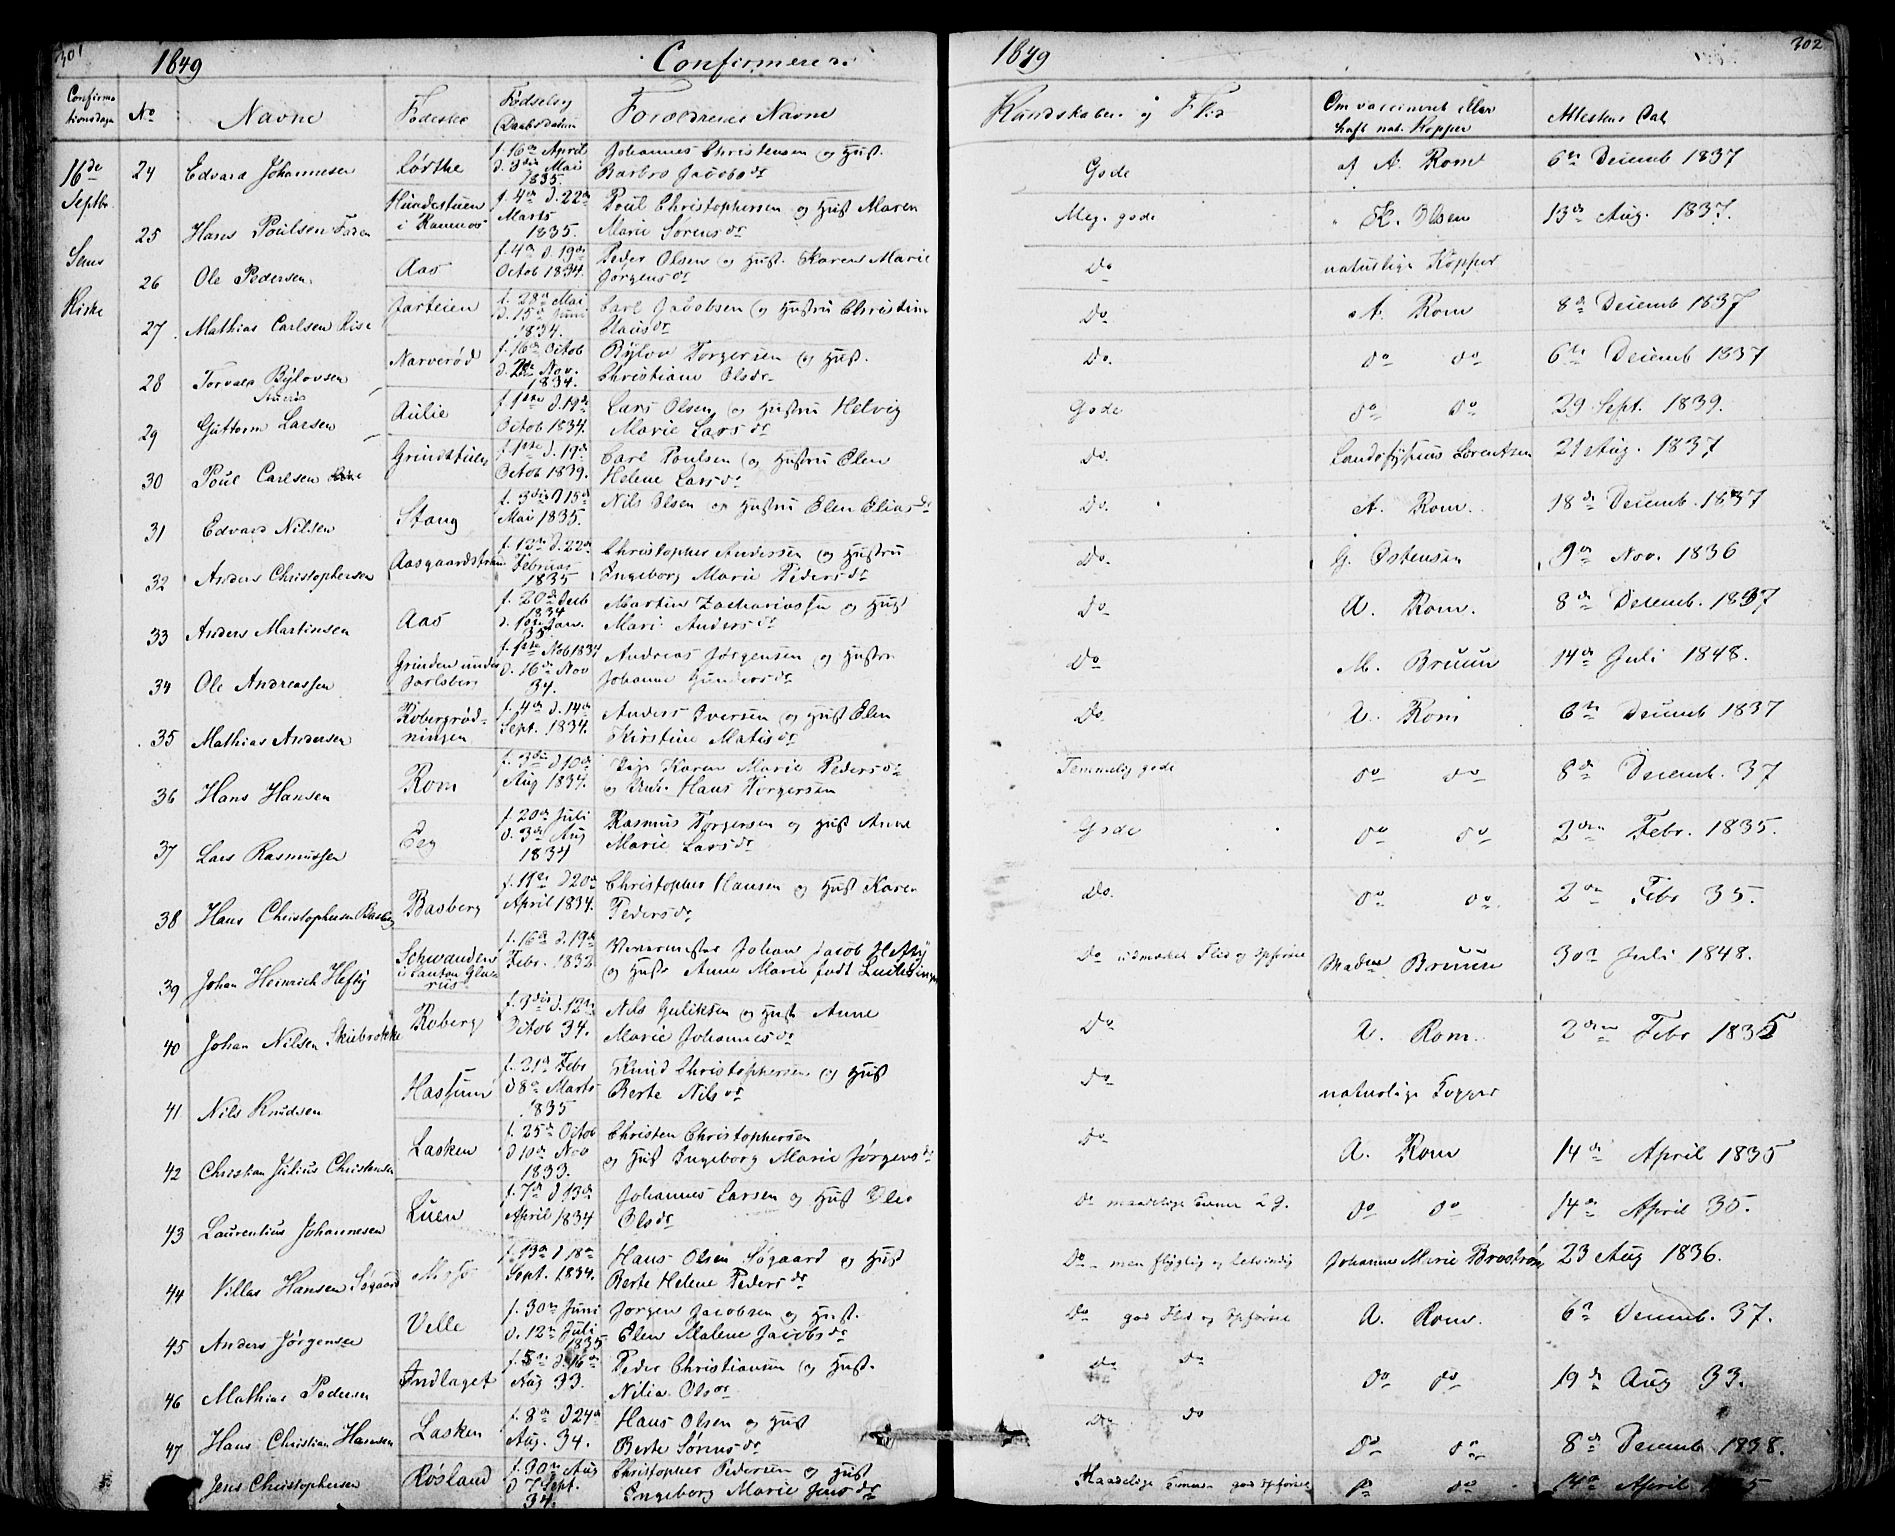 301
1849
Confirmerede
Confirma-
tionsdagen
No
Navne
Fødested
Fødsels og
Daabsdatum
Forældrenes Navne
16de
Septbr.
Sems
Kirke
24 Edvard Johannesen
f. 16de April
d. 3die Mai
1835
Johannes Christensen og Hust.
Barbro Jacobsdr
25 Hans Poulsen
i Ramnes
f. 4de d. 22de
Marts
1835.
Poul Christophersen og Hust Maren
Marie Sørensdr
26 Ole Pedersen
Aas
f. 4de d. 19de
Octob 1834.
Peder Olsen og Hust. Karen Marie
Jørgensdr
27. Mathias Carlsen
Jarteien
f. 28de Mai
d. 15de Juni
1834.
Carl Jacobsen og Hustru Christine
Hansdr
28
Narverød
f. 16de Octob
Nov.
1834.
Torgersen og Hust.
Christiane Olsdr
29 Guttorm Larsen
Aulie
f. 1ste d. 19de
Octob 1834.
Lars Olsen og Hustru Helvig
Marie Larsdr
30 Poul Carlsen
f. 1ste d. 19de
Carl Poulsen og Hustru Elen
Helene Larsdr
31 Edvard Nilsen
Stang
f. 3die d 15de
Mai 1835.
Nils Olsen og Hustru Elen Eliasdr
32 Anders Christophersen
Aasgaardstrand
f. 12te d. 22de
Februar
1835
Christopher Andersen og Hustru
Ingeborg Marie Pedersdr
33 Anders Martinsen
Aas
f. 20de Decb
1834
Martin Zachariassen og Hust
Mari Andersdr
34 Ole Andreassen
Grinden under
Jarlsberg
f. 1ste Nob 1834
d. 16de Nov
34.
Andreas Jørgensen og Hustru
Johanne Gundersdr
35 Mathias Andersen
Robergrød-
ningen
f. 4de d. 14de
Sept. 1834.
Anders Iversen og Hust Elen
Kirstine Matisdr
36 Hans Hansen
Rom
f. 3die d 10de
Aug 1834.
Pige Karen Marie Pedersdr
og Hans Torgersen
37 Lars Rasmussen
Eeg
f. 20de Juli
d. 3die Aug
1834
Rasmus Torgersen og Hust Anne
Marie Larsdr
38 Hans Christophersen Basberg
Basberg
d 20de
April 1834.
Christopher Hansen og Hust Karen
Pedersdr
39 Johan Heinrich Hefty
Schwanden
i Canton Gla-
rus
f. 16de d. 19de
Febr. 1832
Johan Jacob Hefty
og Hustr Anne Marie født
40 Johan Nilsen
Roberg
f. 3die d. 12te
Octob 34.
Nils Guliksen og Hust Anne
Marie Johannesdr
41 Nils Knudsen
Hassum
f. 21de Febr
d 8de Marts
1835
Knud Christophersen og Hust
Berte Nilsdr
42 Christian Julius Christensen
Lasken
f. 25de Octob
d 10de Nov
1833.
Christen Christophersen
og Hust Ingeborg Marie Jørgensdr
43 Laurentius Johannesen
Luen
f. 7de d 13de
April 1834
Johannes Larsen og Hust
Olsdr
44 Villas Hansen Søgaard
f. 13de d 18de
Sept. 1834.
Hans Olsen Søgaard og Hust
Berte Helene Pedersdr
45 Anders Jørgensen
Velle
f. 30te Juni
d. 12te Juli
1835
Jørgen Jacobsen og Hust.
Elen Malene Jacobsdr
46 Mathias Pedersen
Indlaget
f. 5te d. 16de
Aug 33.
Peder Christiansen og Hust.
Nilia Olsdr
47 Hans Christian Hansen
Lasken
f. 8de d 24de
Aug. 34.
Hans Olsen og Hust
Berte Sørensdr
Jens Christophersen
Røsland
f. 30te Aug
d 7 Sept.
34.
Christopher Pedersen og Hust
Ingeborg Marie Jensdr
302
1849
Kundskaber og Flid
Om vaccineret eller
haft nat. Kopper
Attestens Dat.
Gode
af A. Rom
6te Decemb 1837
Meg. gode
K. Olsen
13de Aug. 1837.
Do
naturlige Kopper
Do
A. Rom
8de Decemb 1837
Do.
do do
6te Decemb 1837
Gode
do do
29 Sept. 1839.
Do.
Lorentsen
21 Aug. 1837
Do.
A. Rom.
18de Decemb. 1837
Do.
G. Ostensen
9de Nov. 1836
Do
A. Rom.
8de Decemb. 1837
Do
M. Bruun
14de Juli 1848.
Do
A. Rom
6te Decemb 1837
Temmelig gode
do do
8de Decemb. 37
Gode
do do
2den Febr. 1835.
Do.
do do.
2den Febr 35.
Do udmærket Flid og Opførsel
Madme Bruun
30te Juli 1848.
Do
A. Rom.
2den Febr 1835
Do
naturlige Kopper
Do
A. Rom
14de April 1835
Do maadelige Evner
do do
14de April 35.
Do men flygtig og letsindig
Johanne Marie Brostrøm
23 Aug 1836.
Do god Flid og Opførsel
A. Rom.
6te Decemb. 37.
Do Do
do do
19de Aug 33.
Do do
do do
8de Decemb 1838.
Maadelige Evner god Opførsel
do do
14de April